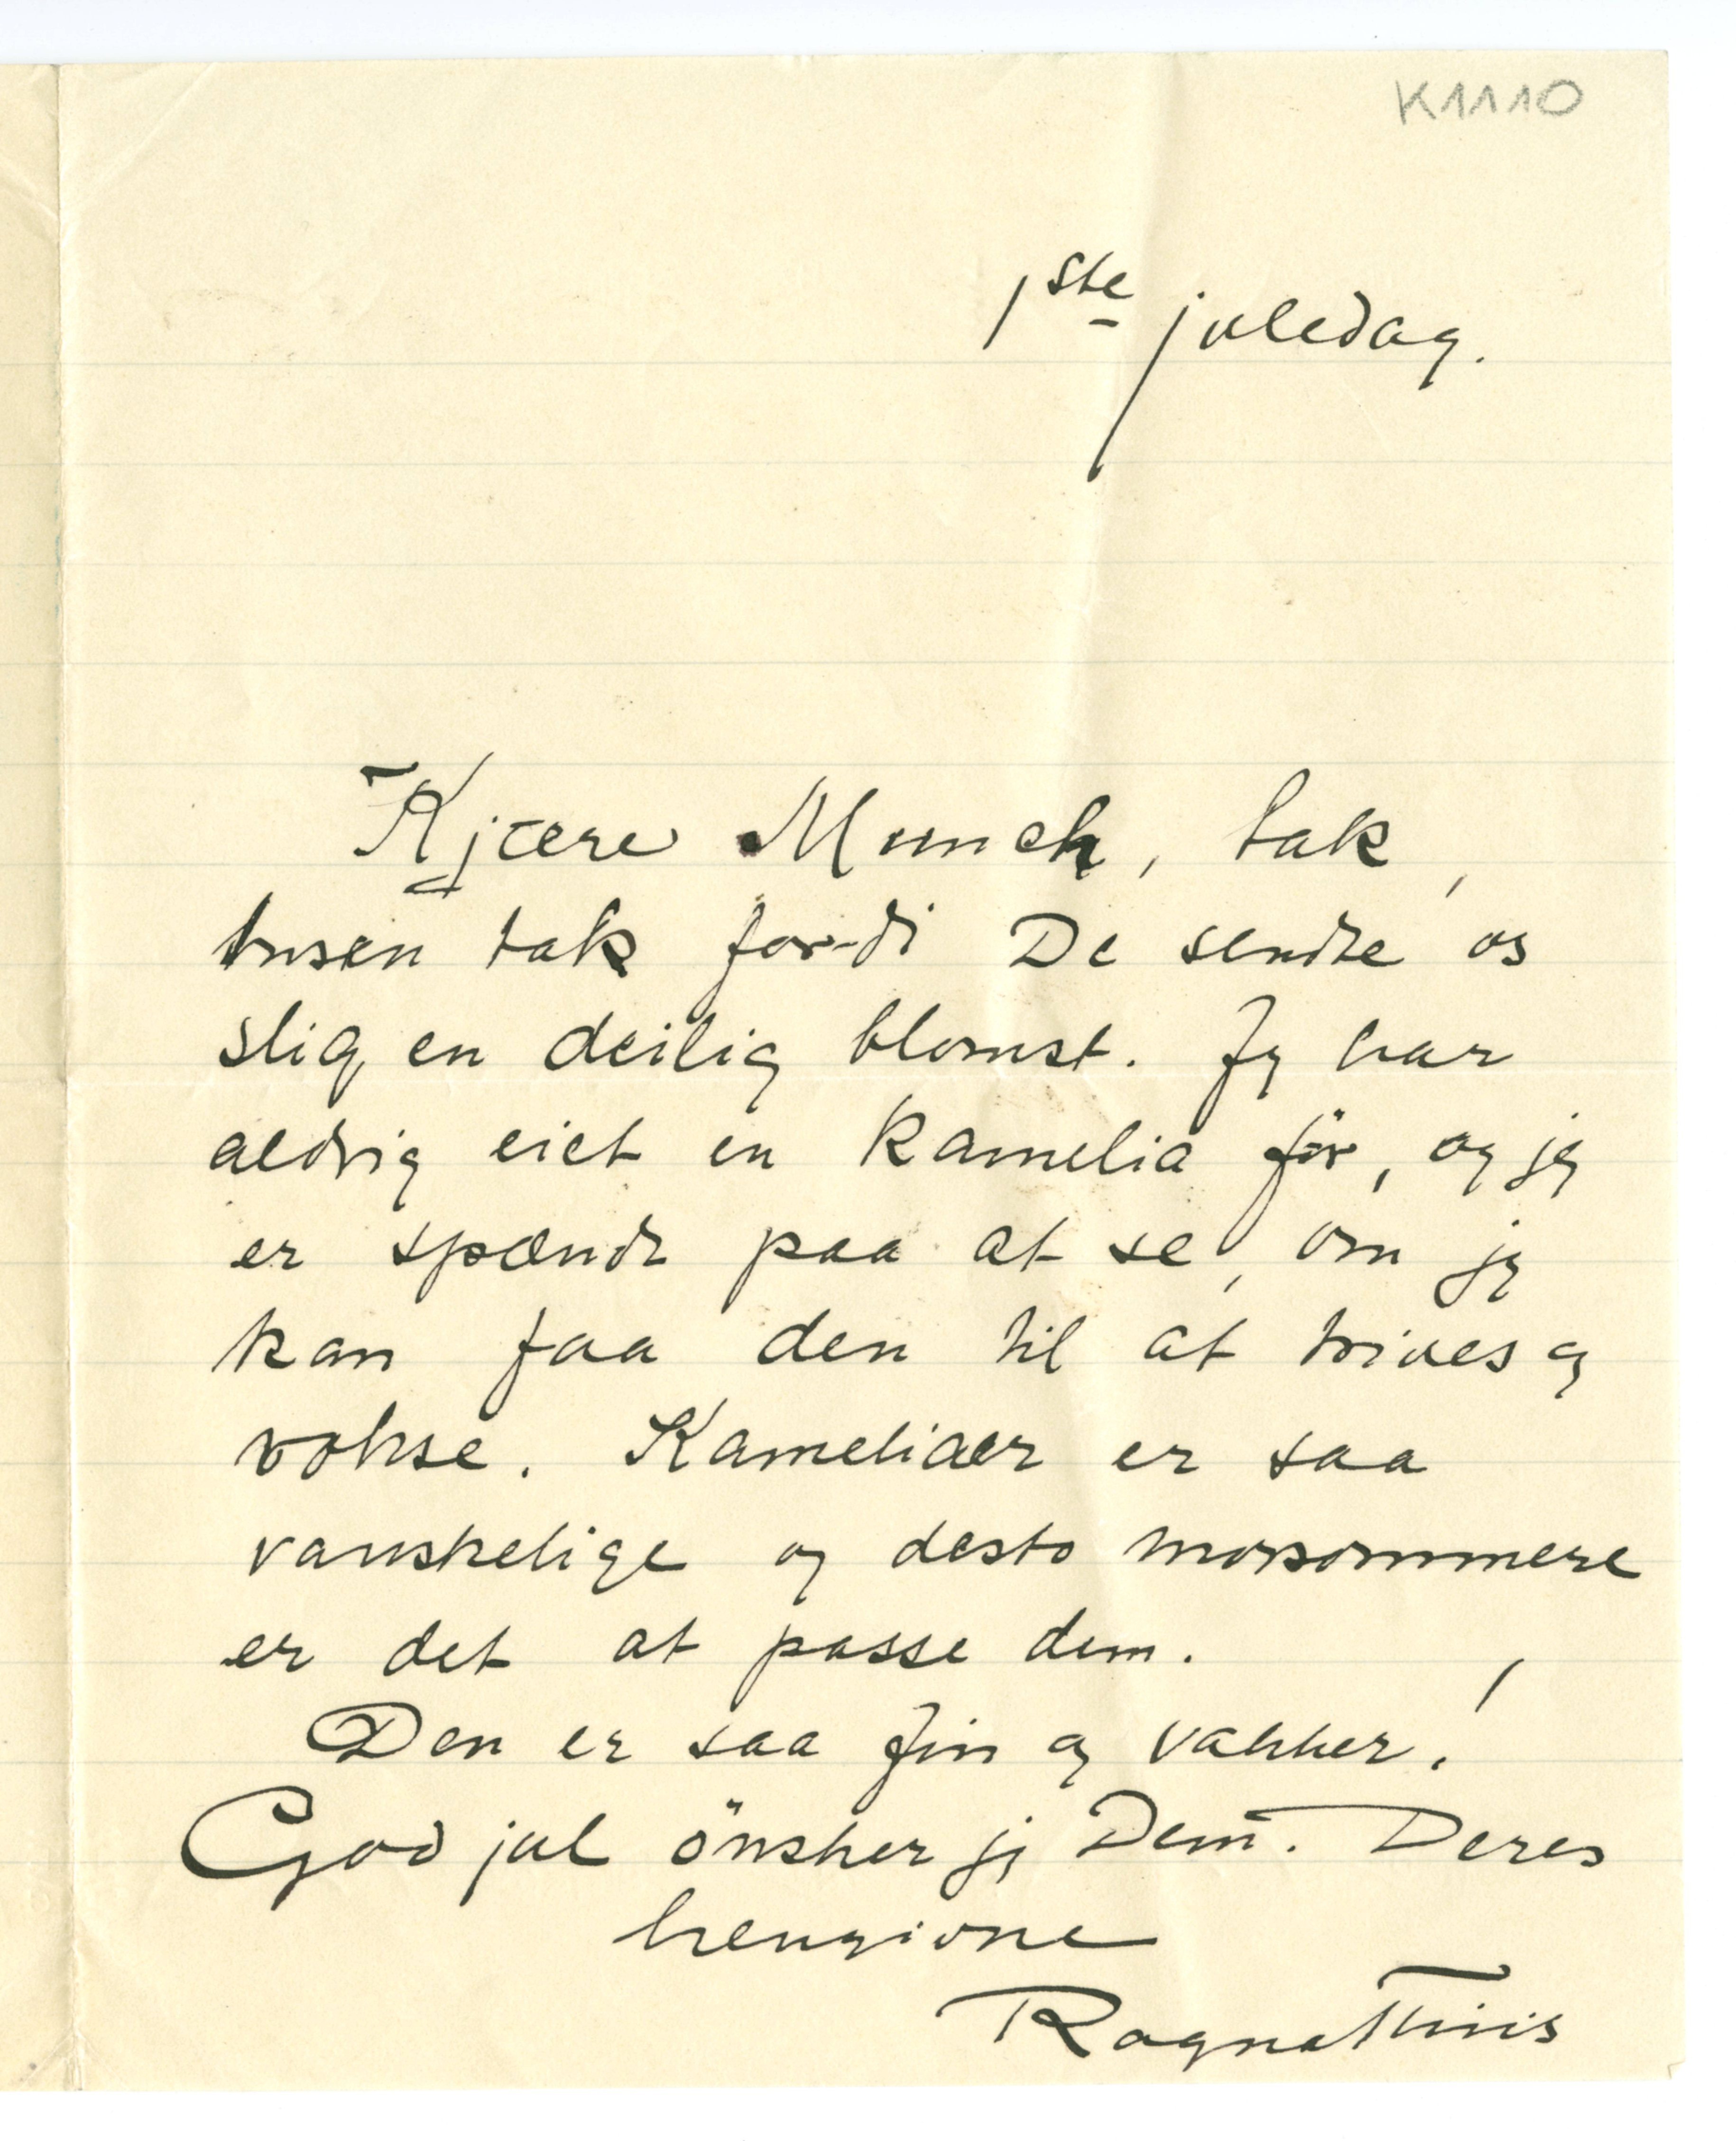 K1110
1ste juledag.
Kjære Munch, tak,
tusen tak for-di De sendte os
slig en deilig blomst. Jeg har
aldrig eiet en kamelia för, og jeg
er spændt paa at se, om jeg
kan faa den til at trives og
vokse. Kameliaer er saa
vanskelige og desto morsommere
er det at passe dem.
Den er saa fin og vakker!
God jul önsker jeg Dem. Deres
hengivne
Ragna Thiis